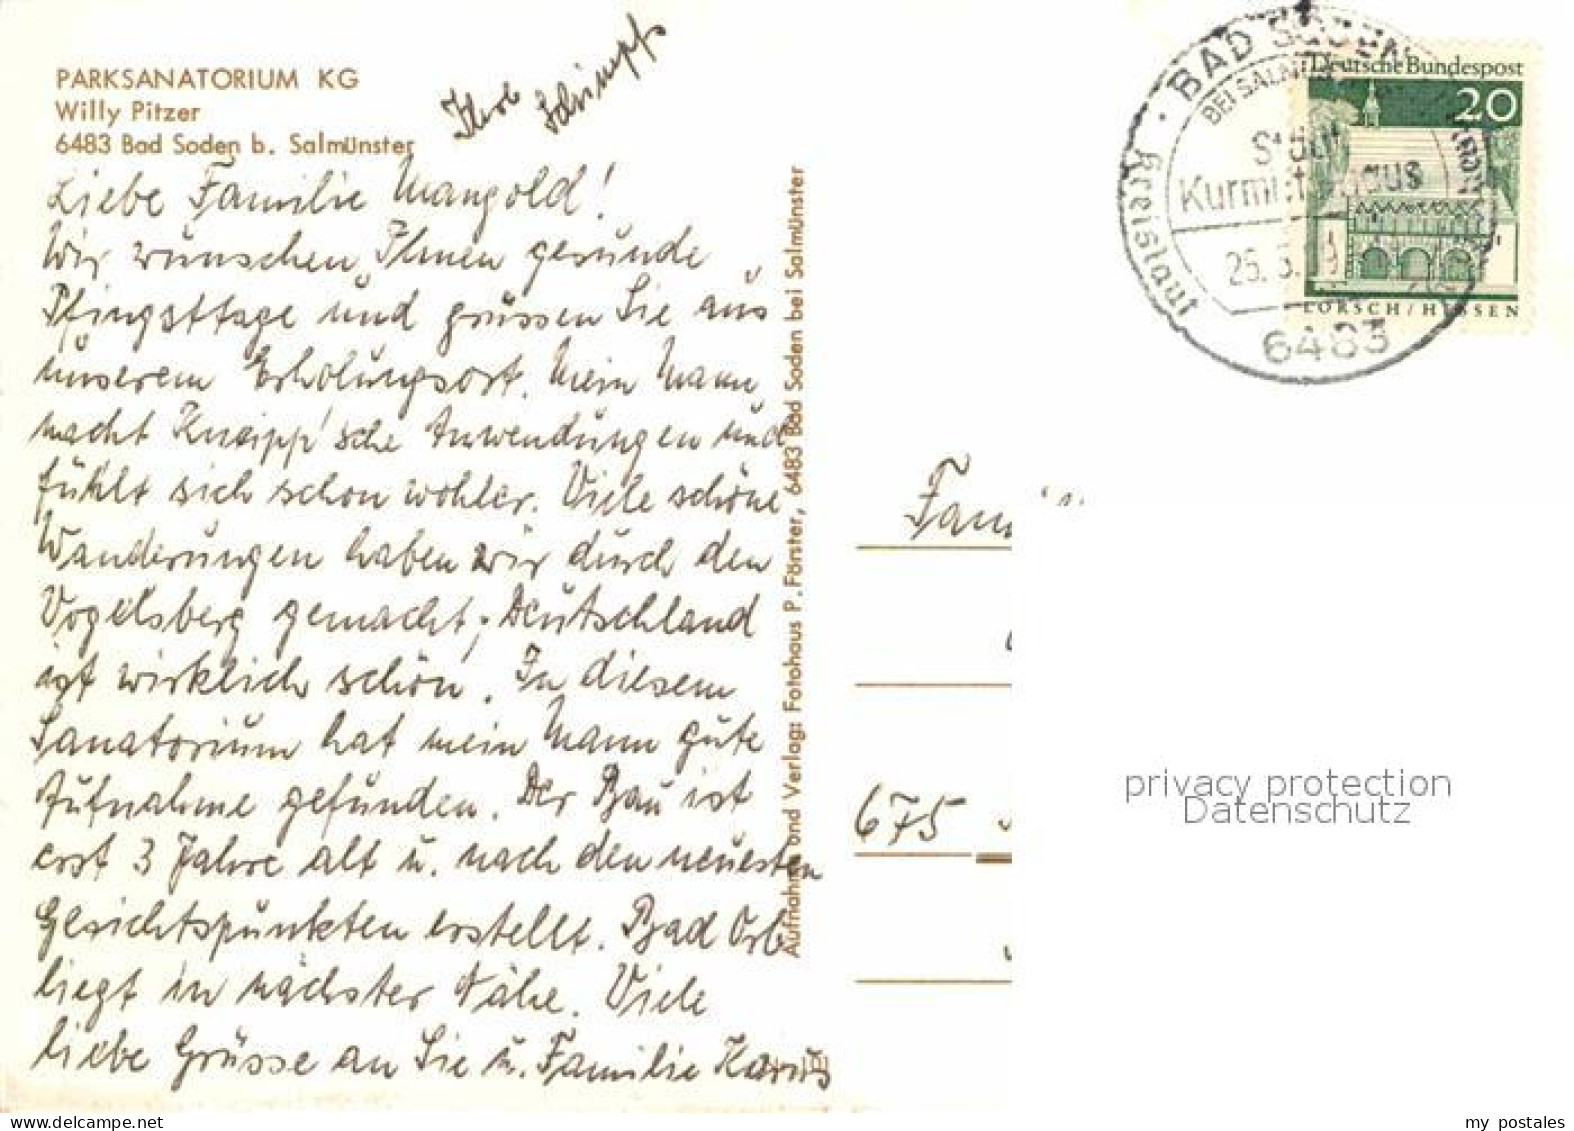 PARKSANATORIUM KG
Willy Pitzer
6483 Bad Soden b. Salmünster
Liebe Familie Mangold!
Wir wünschen Ihnen gesunde
Pfingsttage und grüssen Sie aus
unserem Erholungsort. Mein Mann
macht Kneipp'sche Anwendungen und
fühlt sich schon wohler. Viele schöne
Wanderungen haben wir durch den
Vogelsberg gemacht; Deutschland
ist wirklich schön. In diesem
Sanatorium hat mein Mann gute
Aufnahme gefunden. Der Bau ist
erst 3 Jahre alt u. nach den neuesten
Gesichtspunkten erstellt. Bad Orb
liegt in nächster Nähe. Viele
liebe Grüsse an Sie u. Familie Karus
Ihre
Schimpfs
Aufnahme und Verlag: Fotohaus P. Förster, 6483 Bad Soden bei Salmünster
BAD SODEN
BEI SALM
Kurmi
Kreislauf
6483
Deutsche Bundespost
20
LORSCH/HESSEN
Fam
675
privacy protection
Datenschutz
my postales